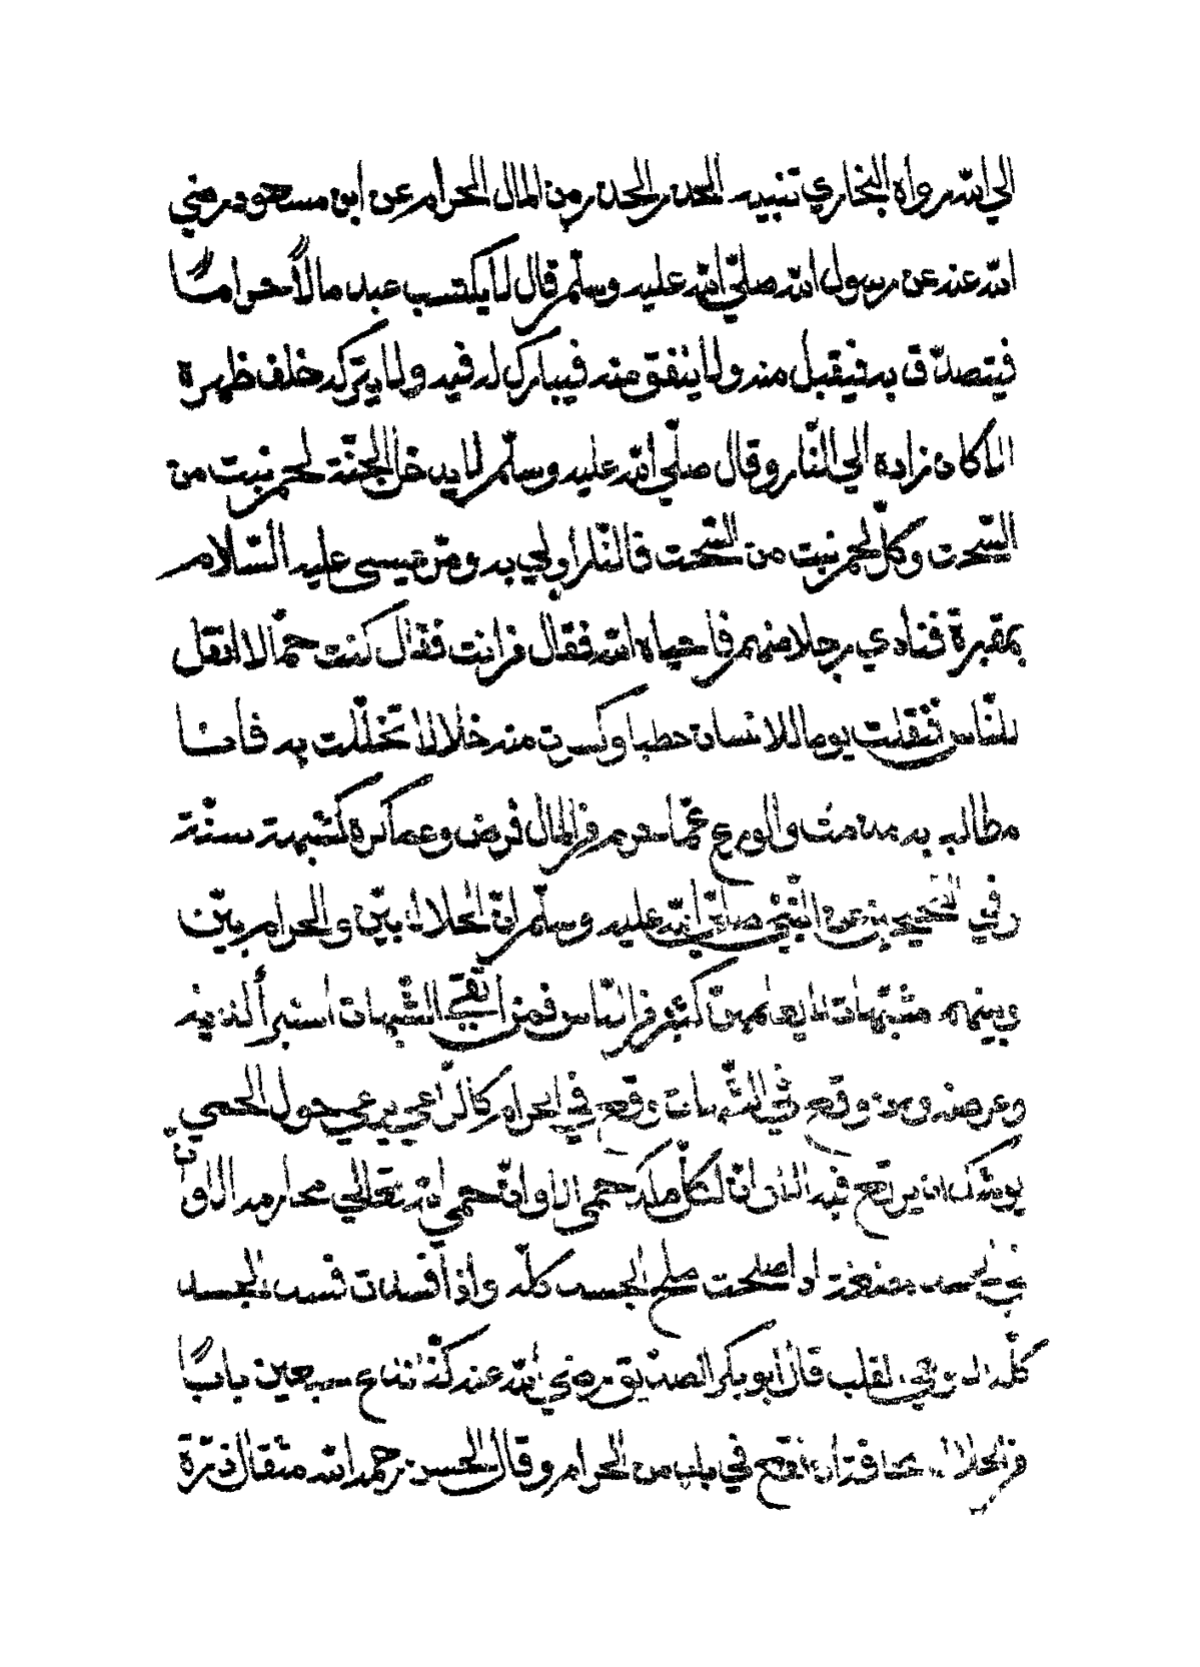 الي الله رواه البخاري تنبيه الحذر الحذر من المال الحرام عن ابن مسعود رضي
الله عنه عن رسول الله صلّي الله عليه وسلّم قال لا يكتسب عبد مالاً حرامًا
فيتصدّق به فيقبل منه ولا ينفق منه فيبارك له فيه ولا يتركه خلف ظهره
الا كان زاده الي النّار وقال صلّي الله عليه وسلّم لا يدخل الجنّة لحم نبت من
السّحت وكلّ لحم نبت من السّحت فالنّار اولي به ومرّ عيسي عليه السّلام
بمقبرة فنادي رجلا منهم فاحياه الله فقال من انت فقال كنت حمّالا انقل
للنّاس فنقلت يوما لانسان حطبا وكسرت منه خلالا تخلّلت به فانا
مطالب به منذ متّ والورع عمّا حرم من المال فرض وعما كره كشبهة سنّة
وفي الصّحيحين عن النّبيّ صلّي الله عليه وسلّم انّ الحلال بيّن والحرام بيّن
وبينهم مشبّهات لا يعلمهنّ كثير من النّاس فمن اتّقي الشّبهات استبرأ لدينه
وعرضه ومن وقع في الشّبهات وقع في الحرام كالرّاعي يرعي حول الحمي
يوشك ان يرتع فيه الا وان لكلّ ملك حمي الا وانّ حمي الله تعالي محارمه الا وانّ
في الجسد مضغة اذا صلحت صلح الجسد كلّه واذا فسدت فسد الجسد
كلّه الا وهي القلب قال ابو بكر الصدّيق رضي الله عنه كنّا ندع سبعين بابًا
من الحلال مخافة ان نقع في باب من الحرام وقال الحسن رحمه الله مثقال ذرّة